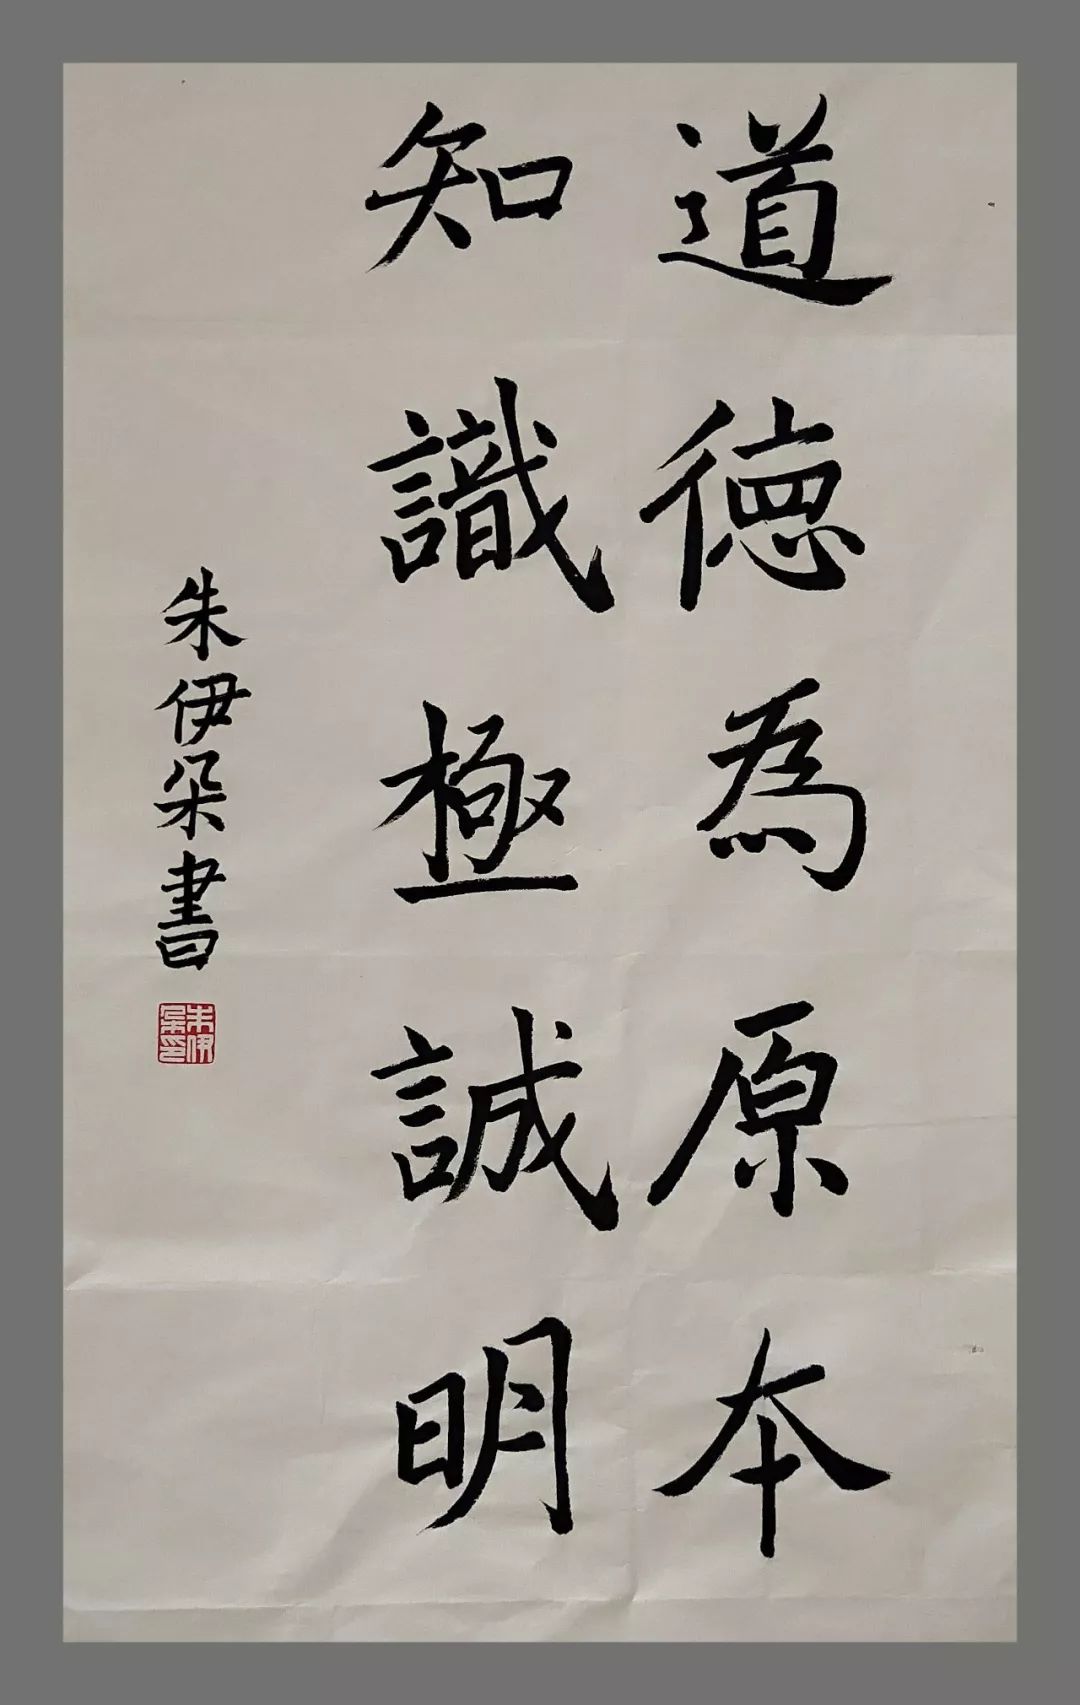 道德為原本
知識極誠明
朱伊朵書
朱伊朵印